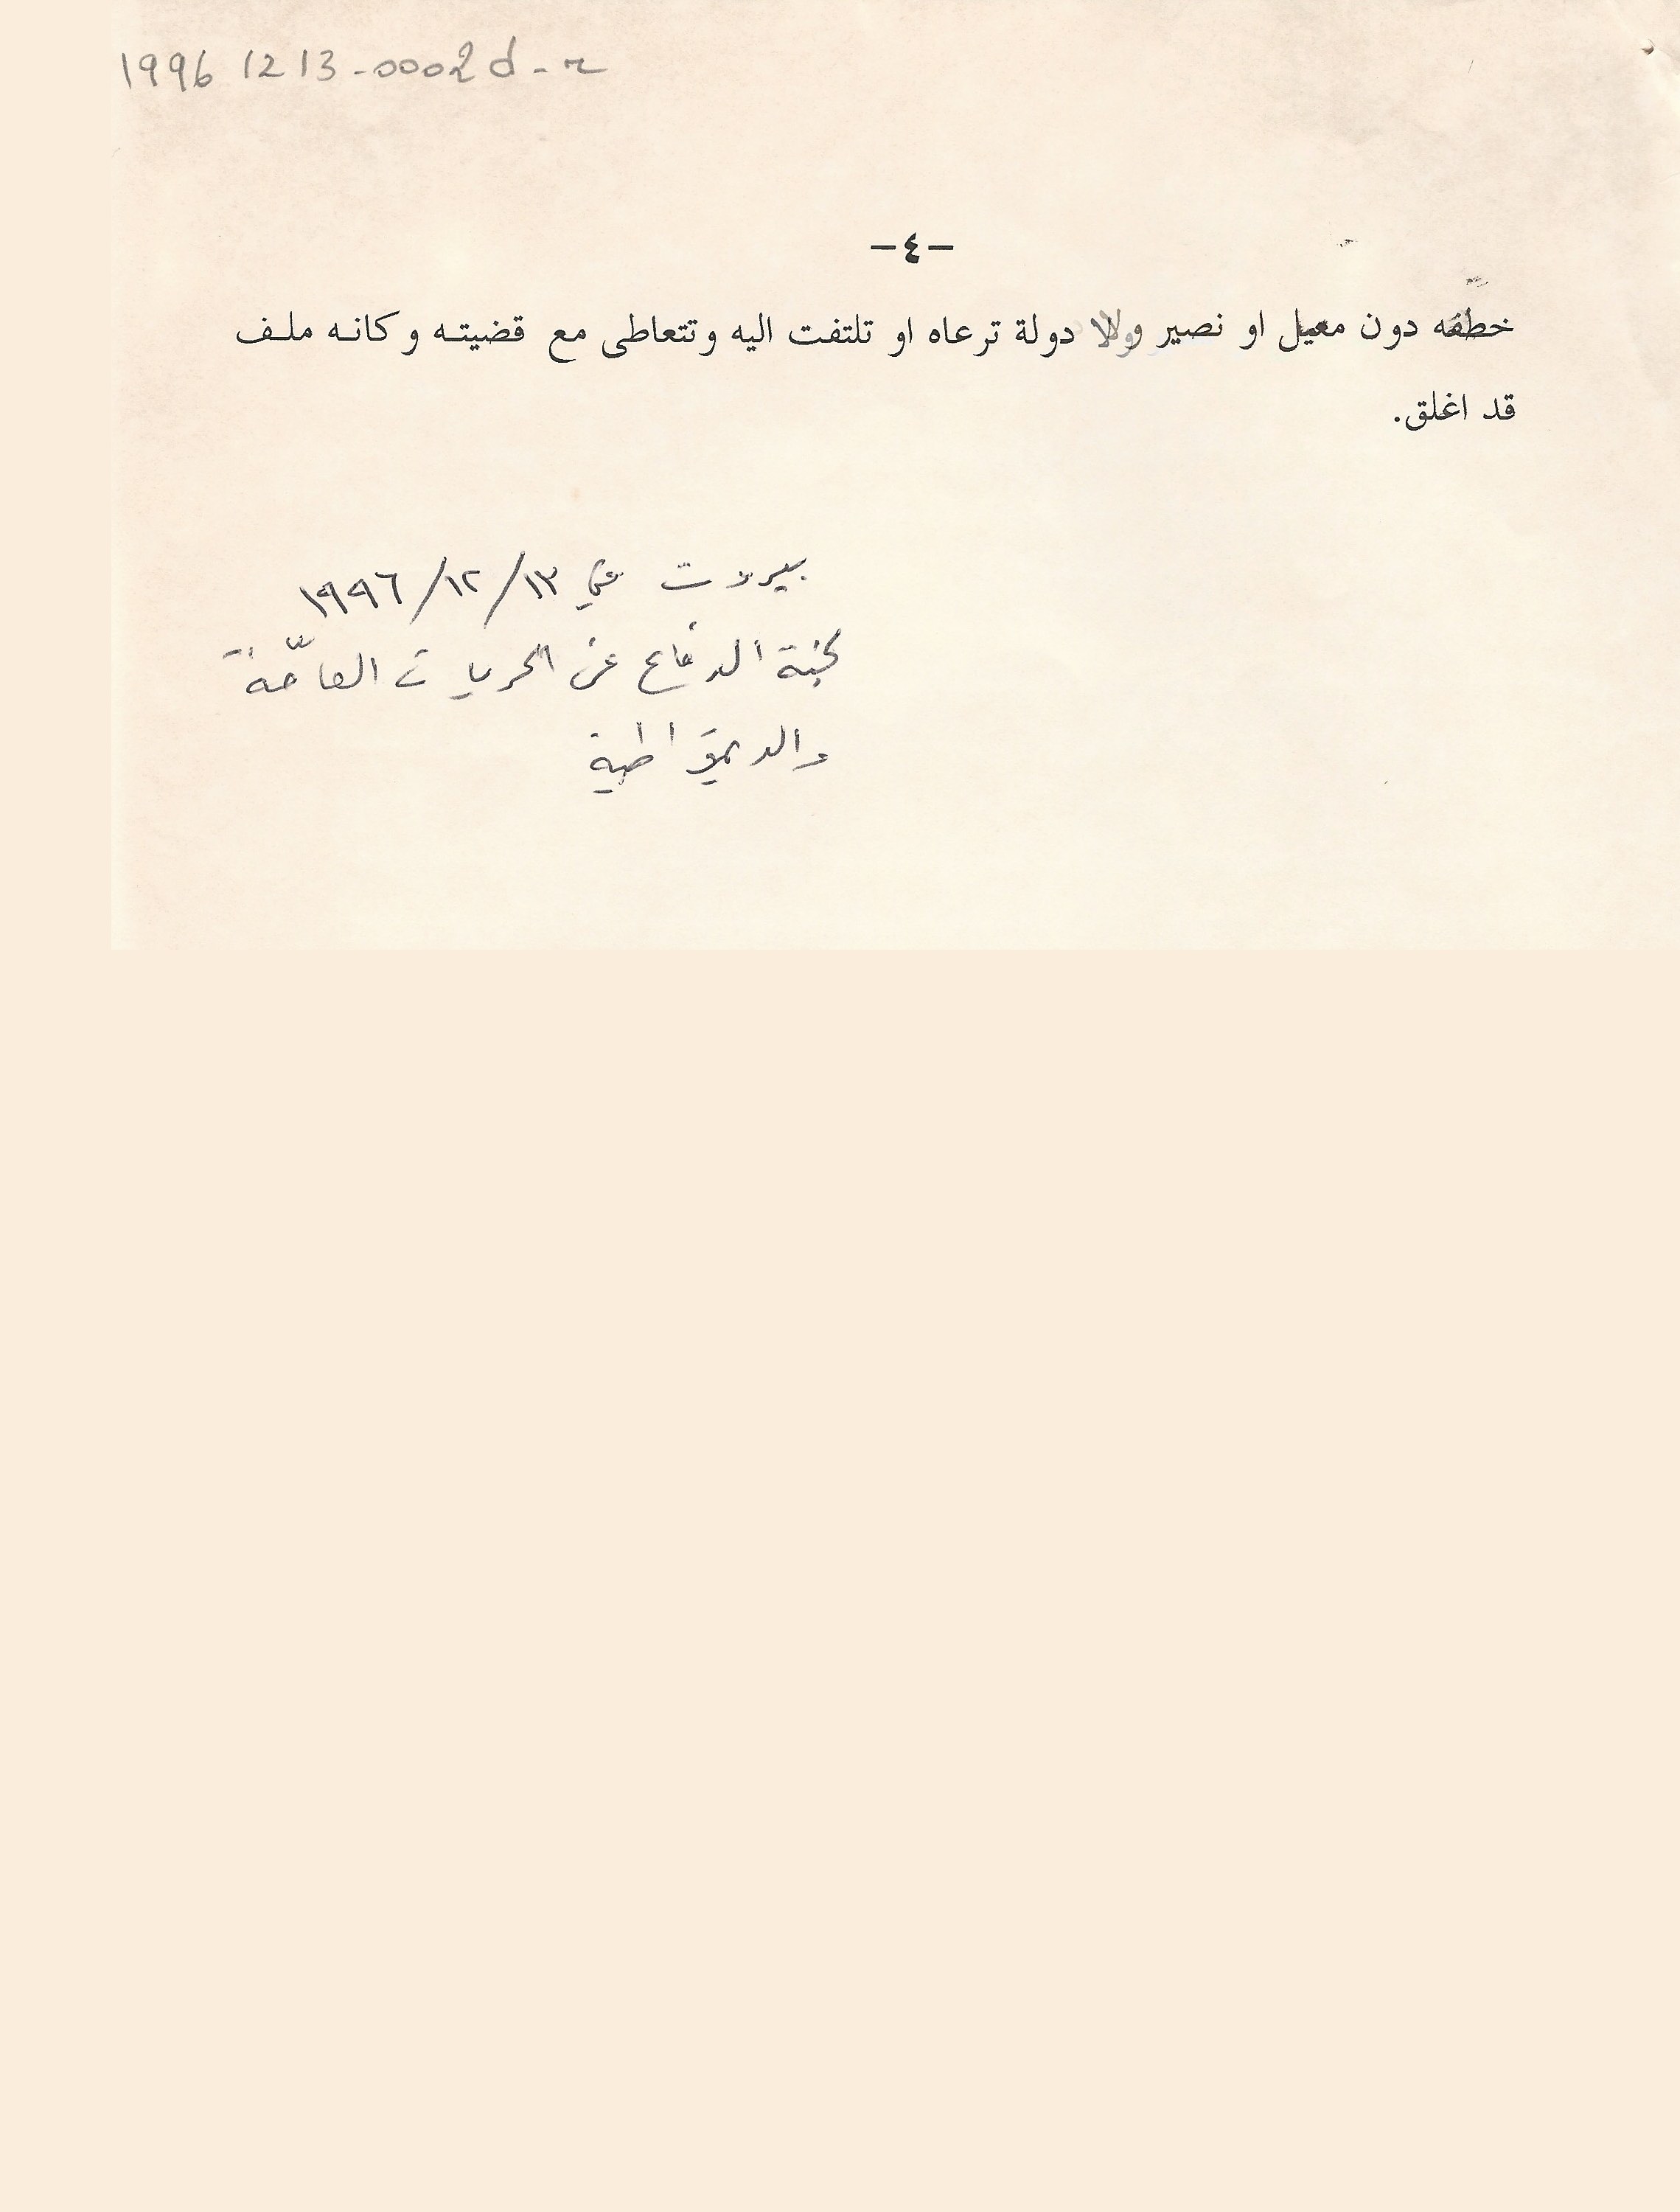 1996 12 13-0002 d-r
-٤-
خطفه دون معيل او نصير ولا دولة ترعاه او تلتفت اليه وتتعاطى مع قضيته وكانه ملف
قد اغلق.
بيروت في ١٩٩٦/١٢/١٣
لجنة الدفاع عن الحريات العامّة
والديموقراطية